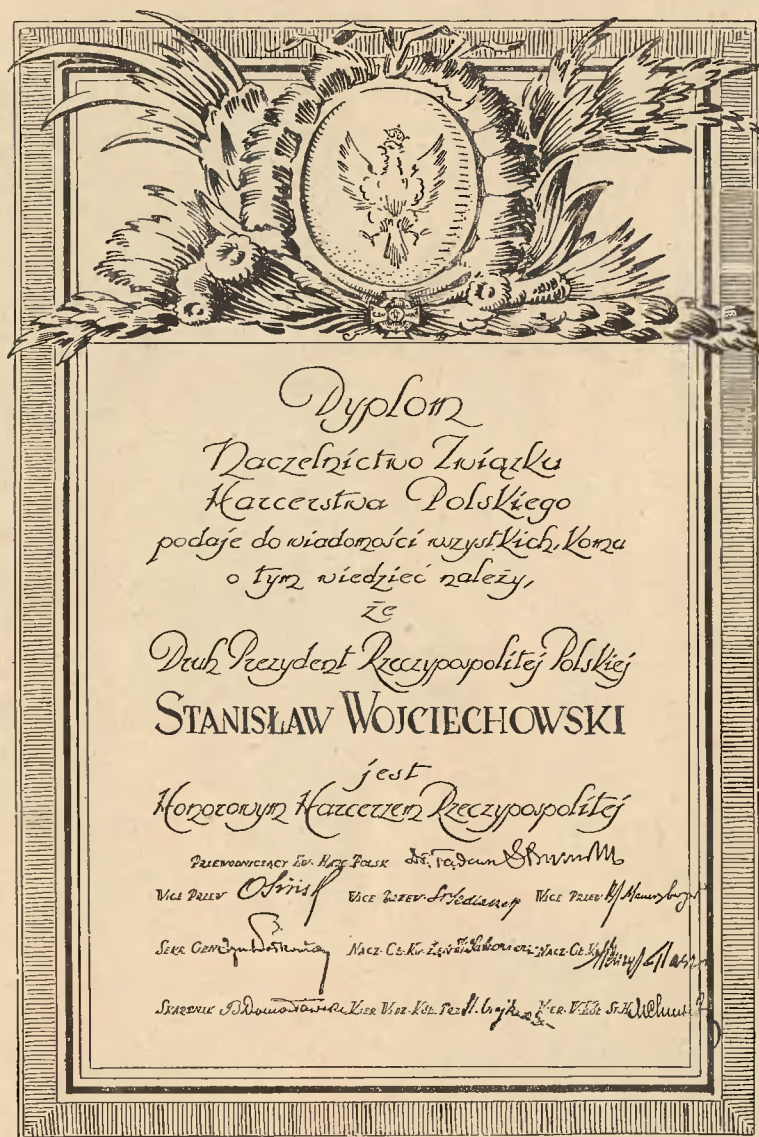 Dyplom
Naczelnictwo Związku
Harcerstwa Polskiego
podaje do wiadomości wszystkich, komu
o tym wiedzieć należy,
że
Druh Prezydent Rzeczypospolitej Polskiej
STANISŁAW WOJCIECHOWSKI
jest
Honorowym Harcerzem Rzeczypospolitej
PRZEWODNICZĄCY ZW. HARC. POLSK
VICE PRZEW VICE PRZEW. VICE PRZEW
SEKR GEN NACZ. NACZ.
SKARBNIK KIER